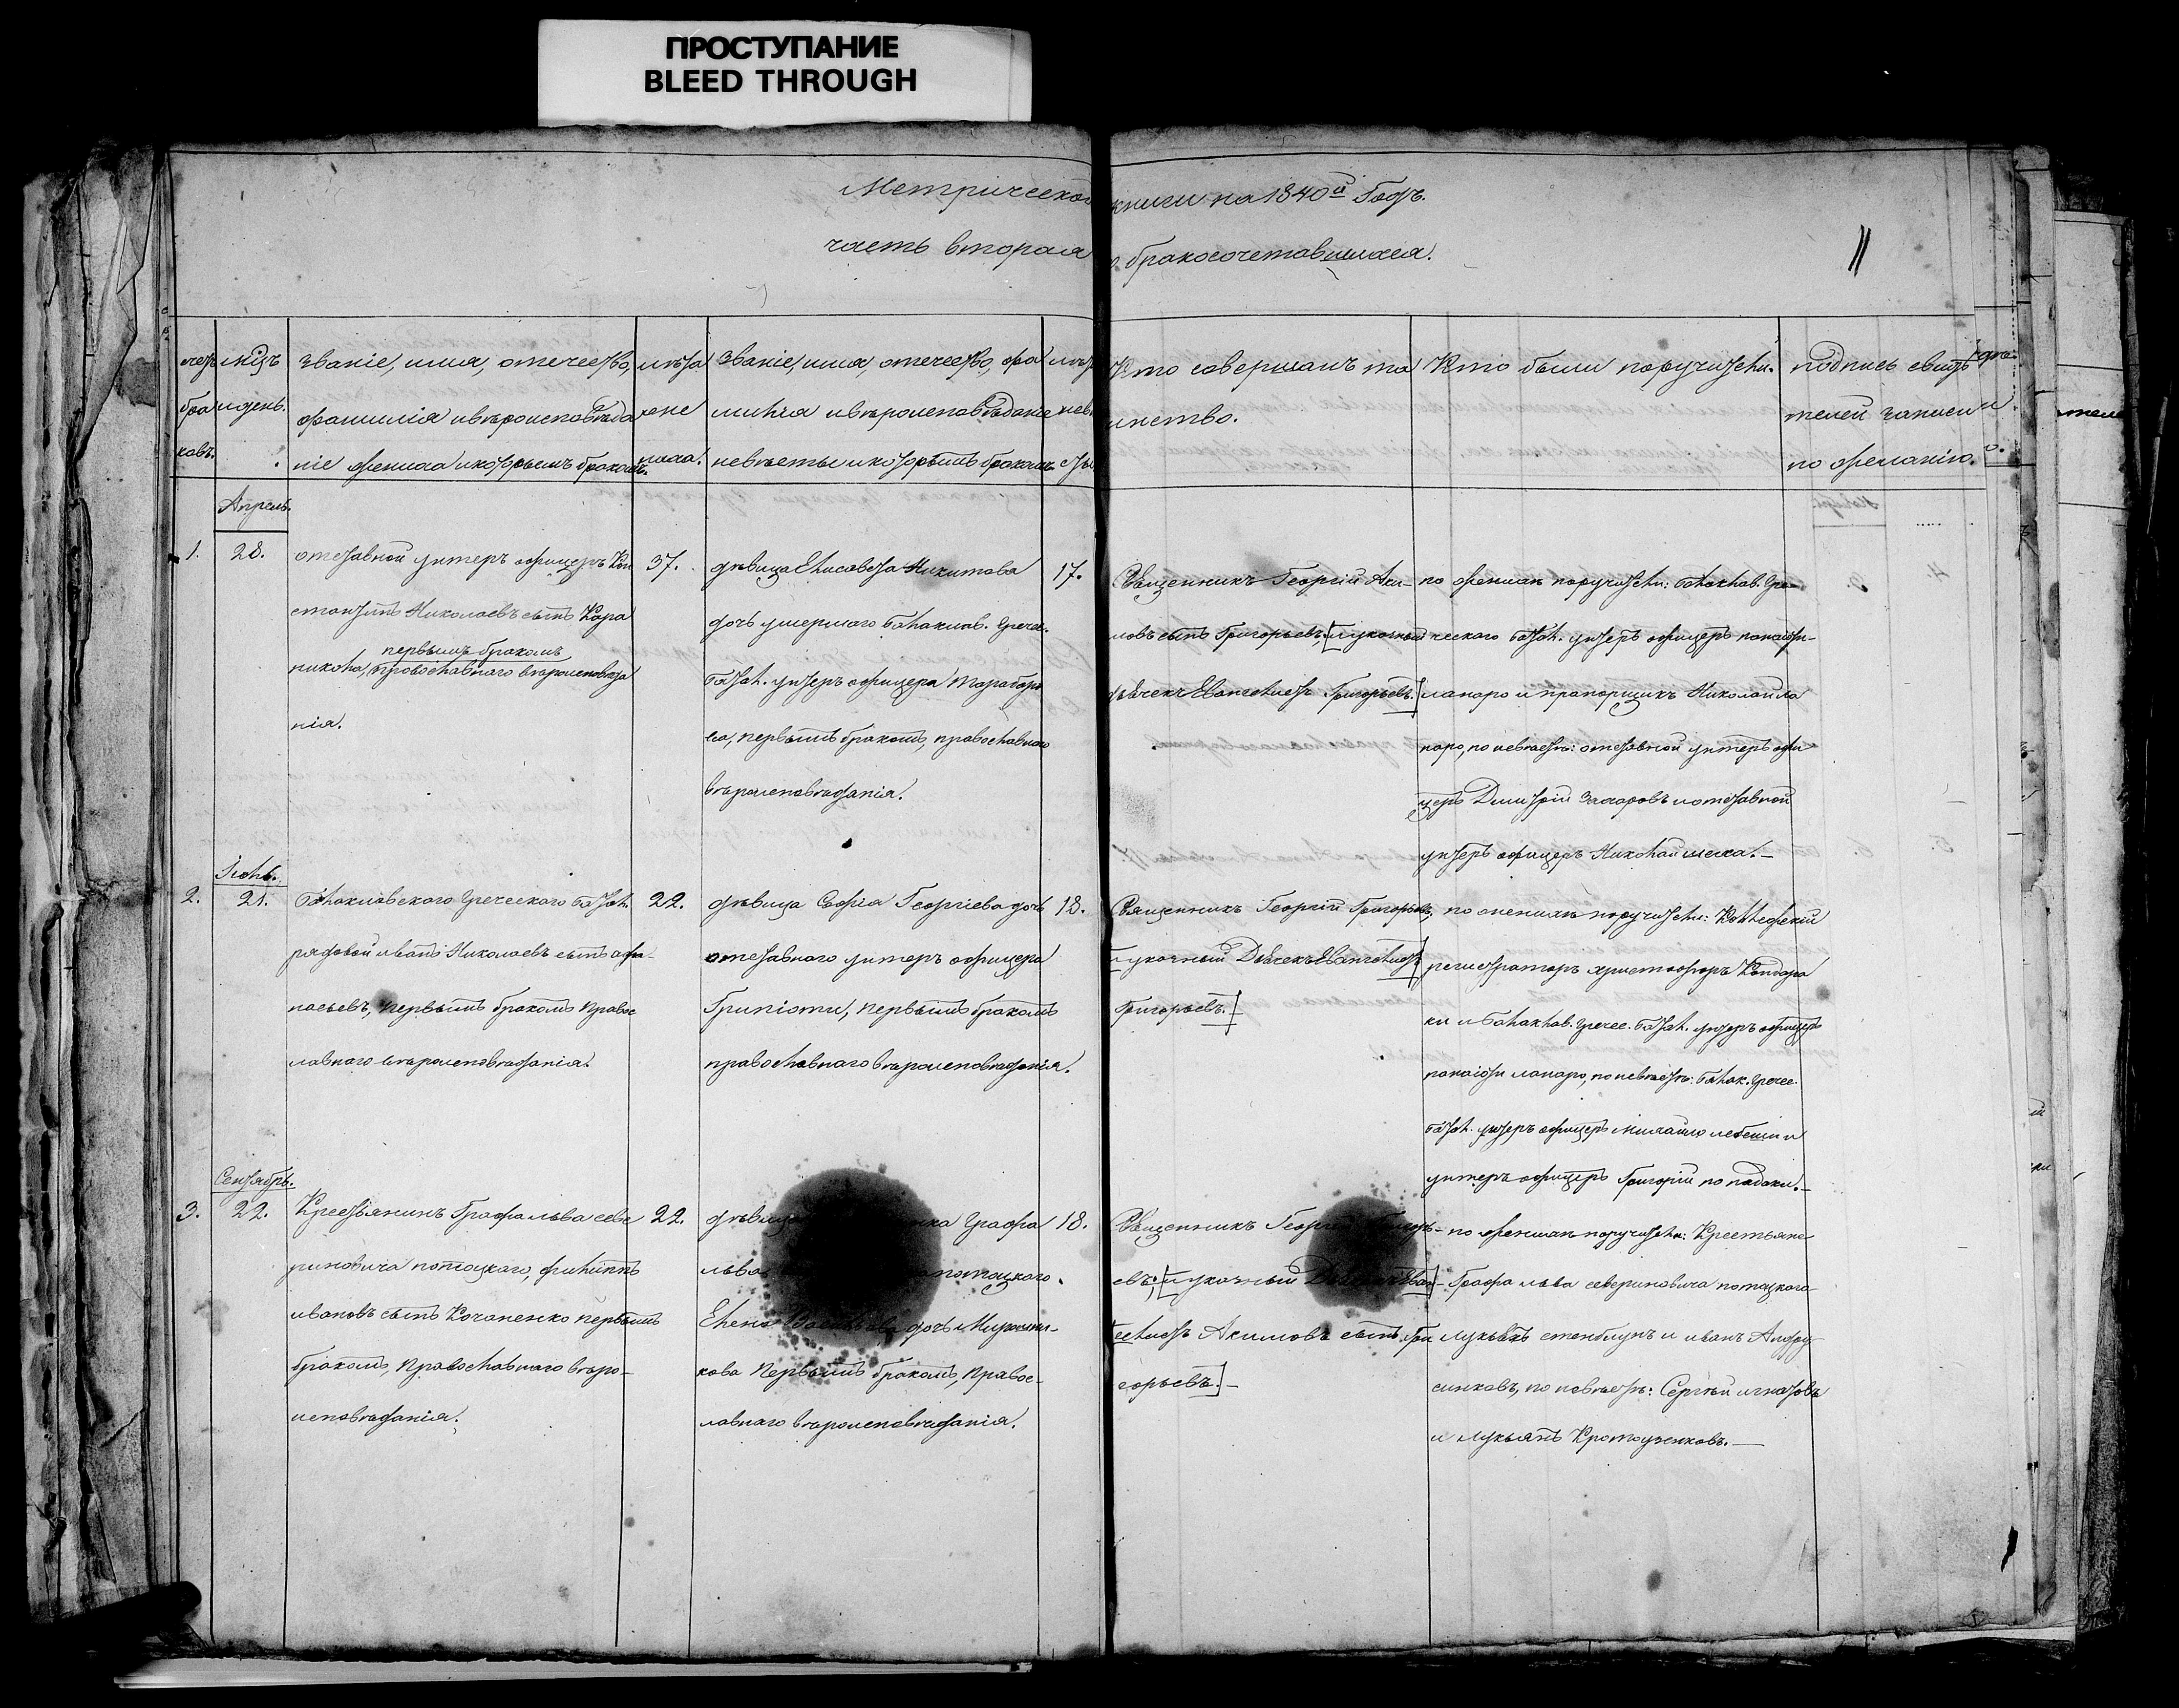 ПРОСТУПАНИЕ
BLEED THROUGH
Метрической книги на 1840й Годъ.
часть вторая о бракосочетавшихся.
11
мѣцъ
и день.
званіе, имя, отечество,
фамилія и вѣроисповѣда
ніе жениха и которымъ бракомъ.
лѣта
жени
хаа.
званіе, имя, отечество, фа
милія и вѣроисповѣданіе
невѣсты и которымъ бракомъ
Кто совершалъ та
инство.
Кто были поручители.
подпись свидѣ
телей записи
по желанію.
Апрель.
1. 28.
отставной унтеръ офицеръ Кон
стантинъ Николаевъ сынъ Кара
первымъ бракомъ
никола, православнаго вѣроисповѣда
нія.
37.
дѣвица Елисавета Никитова
дочь умершаго балаклав. Гречес.
батал. унтеръ офицера
первымъ бракомъ, православнаго
вѣроисповѣданія.
17.
Священникъ Георгій Аки-
мовъ сынъ Григорьевъ, [и указный
дьячекъ Евангелистъ Григорьевъ.]
по женихѣ поручители: балаклав. Гре-
ческаго батал. унтеръ офицеръ панаіоти
лапаро и прапорщикъ Николай ла
паро, по невѣстѣ: отставной унтеръ офи
церъ Димитрій Захаровъ и отставной
унтеръ офицеръ Николай
Іюнь.
2. 21.
балаклавского Греческого батал.
рядовой иванъ Николаевъ сынъ афа-
насьевъ, первымъ бракомъ правос
лавнаго вѣроисповѣданія.
22.
дѣвица Софія Георгіева дочь
отставнаго унтеръ офицера
Грипіоти, первымъ бракомъ
православнаго вѣроисповѣданія.
18.
Священникъ Георгій Григорьевъ,
[и указный Дьячекъ Евангелистъ
Григорьевъ.]
по женихѣ поручители: Коллежскій
регистраторъ христофоръ Кондара
ки и балаклав. гречес. батал. унтеръ офицеръ
панаіоти лапаро, по невѣстѣ: балак. гречес.
батал. унтеръ офицеръ михайло
унтеръ офицеръ Григорій
Сентябрь.
3. 22.
Крестьянинъ Графа льва севе
риновича потоцкаго, филиппъ
ивановъ сынъ Кочаненко первымъ
бракомъ, православнаго вѣро-
исповѣданія.
22.
дѣвица Графа
льва потоцкаго,
Елена дочь Мирошни-
кова первымъ бракомъ, правос-
лавнаго вѣроисповѣданія.
18.
Священникъ Георгій Григорь-
евъ, [и указный
Акимовъ сынъ Гри
горьевъ.]
по женихѣ поручители: Крестьяне
Графа льва севериновича потоцкого
лукьянъ и иванъ Андру
сенковъ, по невѣстѣ: Сергѣй игнатовъ
и лукьянъ